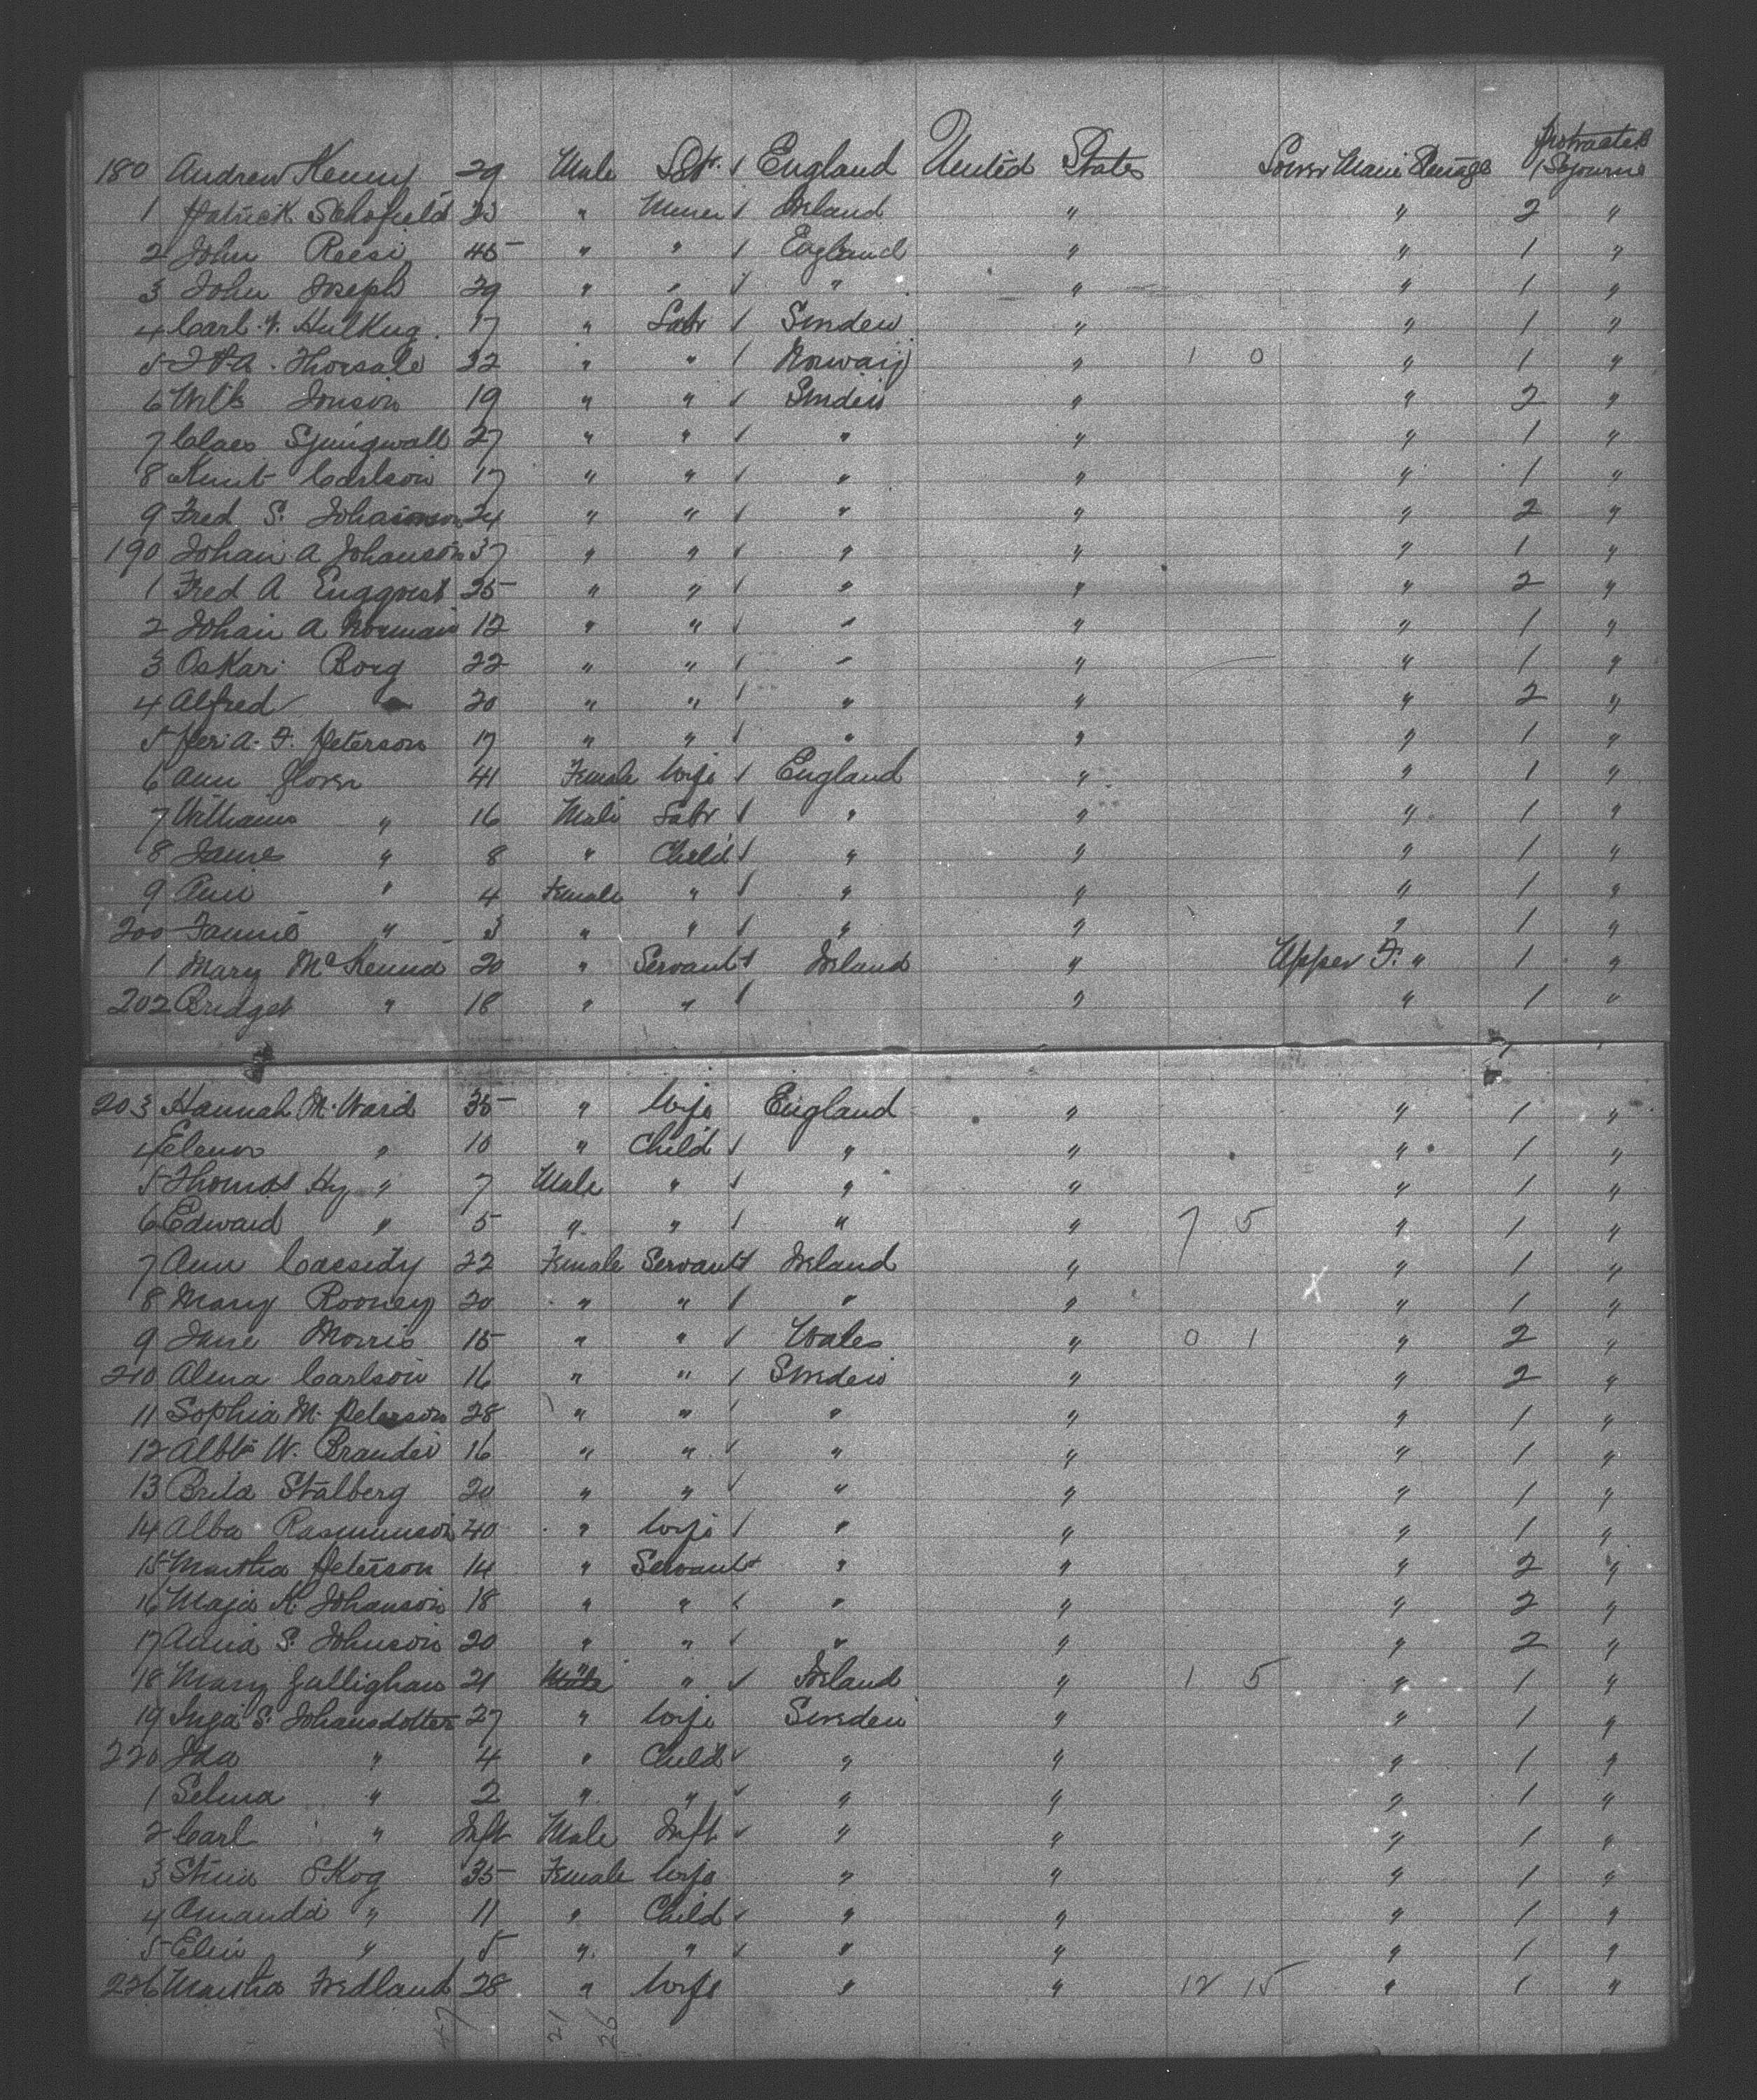 180 Andrew Kenny 29 Male Labr England United States Lower Main Steerage 1 Protracted Sojourn
1 Patrick Schofield 23 " Miner Ireland " " 2 "
2 John Reese 45 " " England " " 1 "
3 John Joseph 29 " " " " " 1 "
4 Carl 17 " Labr Sweden " " 1 "
5 32 " " Norway " 1 0 " 1 "
6 Jonson 19 " " Sweden " " 2 "
7 Claes 27 " " " " " 1 "
8 Knut Carlson 17 " " " " " 1 "
9 Fred S. Johanson 24 " " " " " 2 "
190 Johan A Johanson 37 " " " " " 1 "
1 Fred A Engqvist 25 " " " " " 2 "
2 Johan A Norman 12 " " " " " 1 "
3 Oskar Borg 22 " " " " " 1 "
4 Alfred " 20 " " " " " 2 "
5 Per. A. F. Peterson 17 " " " " " 1 "
6 Ann Glover 41 Female Wife England " " 1 "
7 William " 16 Male Labr " " " 1 "
8 James " 8 " Child " " " 1 "
9 Ann " 4 Female " " " " 1 "
200 Fannie " 3 " " " " " 1 "
1 Mary McKenna 20 " Servant Ireland " Upper F. " 1 "
202 Bridget " 18 " " " " 1 "
203 Hannah M. Ward 35 " Wife England " " 1 "
4 Elenor " 10 " Child " " " 1 "
5 Thomas Hy " 7 Male " " " " 1 "
6 Edward " 5 " " " " 7 5 " 1 "
7 Ann Cassidy 22 Female Servant Ireland " " 1 "
8 Mary Rooney 20 " " " " " 1 "
9 Jane Morris 15 " " Wales " 0 1 " 2 "
210 Alma Carlson 16 " " Sweden " " 2 "
11 Sophia M. Peterson 28 " " " " " 1 "
12 W. 16 " " " " " 1 "
13 Brita Stalberg 20 " " " " " 1 "
14 Alba Rasmunson 40 " Wife " " " 1 "
15 Martha Peterson 14 " Servant " " " 2 "
16 Maja K. Johanson 18 " " " " " 2 "
17 Anna S. Johnson 20 " " " " " 2 "
18 Mary Gallighan 21 " " Ireland " 1 5 " 1 "
19 Inga S. Johansdotter 27 " Wife Sweden " " 1 "
220 Ida " 4 " Child " " " 1 "
1 Selma " 2 " " " " " 1 "
2 Carl " Inft Male Inft " " " 1 "
3 Stina Skog 35 Female Wife " " " 1 "
4 Amanda " 11 " Child " " " 1 "
5 Elin " 5 " " " " " 1 "
226 Martha Fredland 28 " Wife " " 12 15 " 1 "
47 21 26